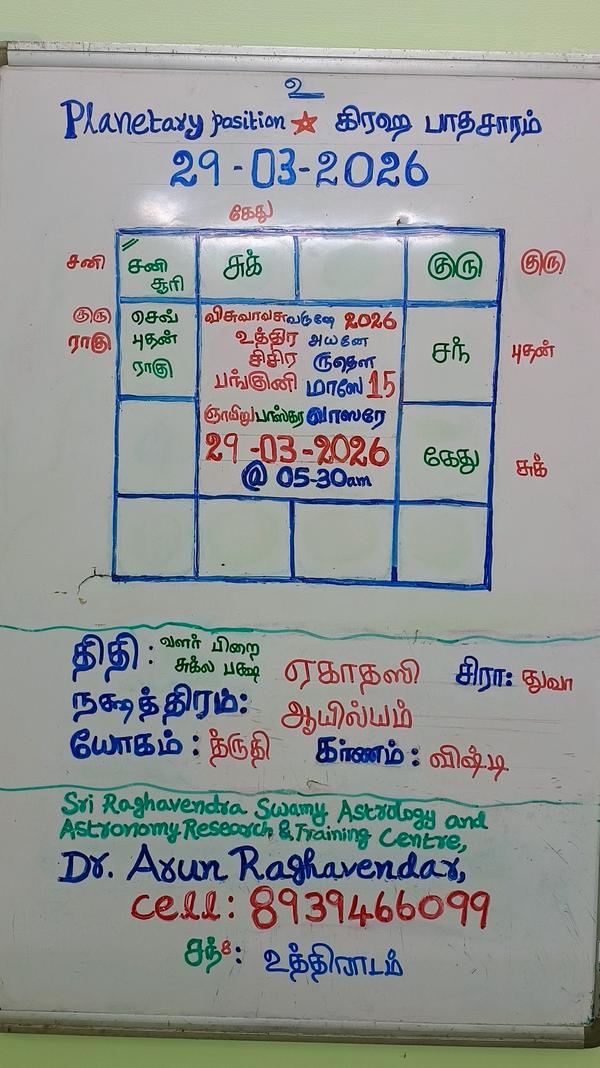 உ
Planetary position ☆ கிரஹ பாதசாரம்
29-03-2026
கேது
சனி
குரு
ராகு
சனி
சூரி
சுக்
குரு
குரு
செவ்
புதன்
ராகு
விசுவாவசுவருஷே 2026
உத்திர அயனே
சிசிர ருதௌ
பங்குனி மாஸே 15
ஞாயிறு பாஸ்கர வாஸரே
29-03-2026
@ 05-30am
சந்
புதன்
கேது
சுக்
திதி: வளர் பிறை சுக்ல பக்ஷ ஏகாதஸி சிரா: துவா
நக்ஷத்திரம்: ஆயில்யம்
யோகம்: த்ருதி கர்ணம்: விஷ்டி
Sri Raghavendra Swamy Astrology and
Astronomy Research & Training Centre,
Dr. Arun Raghavendar,
cell: 8939466099
சந்8: உத்திராடம்